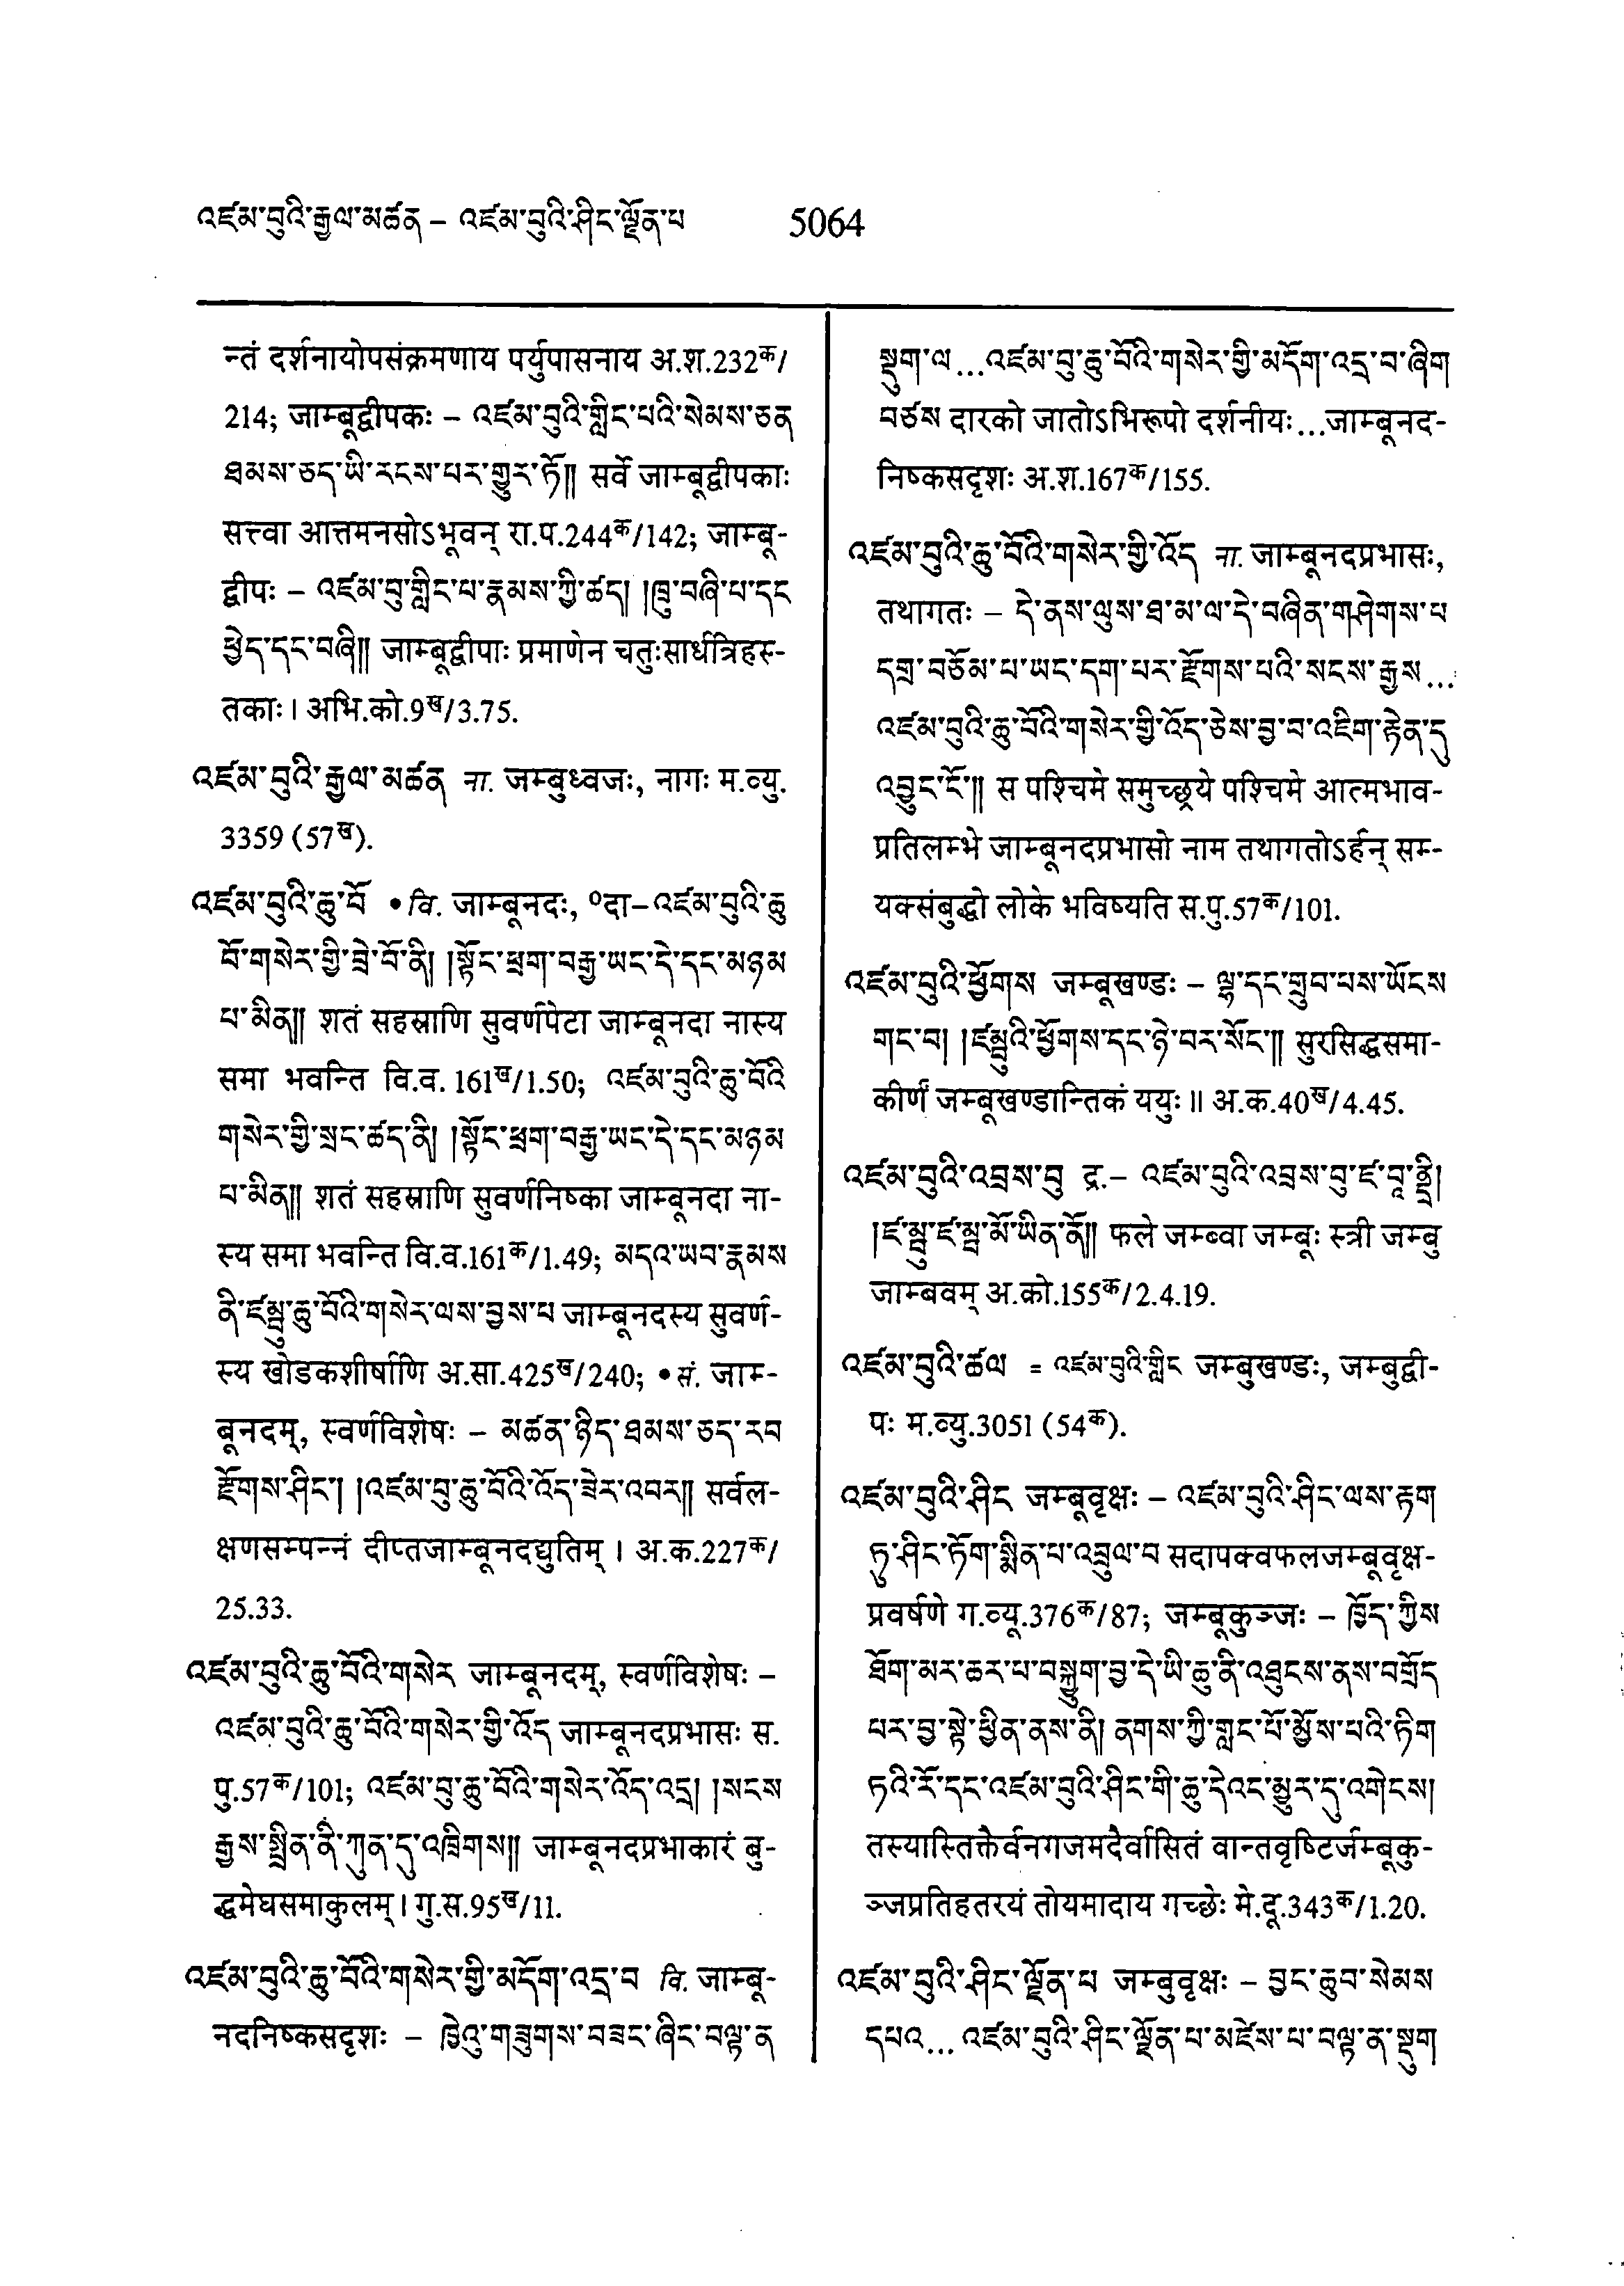 འཛམ་བུའི་རྒྱལ་མཚན – འཛམ་བུའི་ཤིང་ལྗོན་པ 5064
न्तं दर्शनायोपसंक्रमणाय पर्युपासनाय अ.श.232क/
214; जाम्बूद्वीपकः – འཛམ་བུའི་གླིང་པའི་སེམས་ཅན
ཐམས་ཅད་ཡི་རངས་པར་གྱུར་ཏོ།། सर्वे जाम्बूद्वीपकाः
सत्त्वा आत्तमनसोऽभूवन् रा.प.244क/142; जाम्बू-
द्वीपः – འཛམ་བུ་གླིང་པ་རྣམས་ཀྱི་ཚད། །ཁྲུ་བཞི་པ་དང
ཕྱེད་དང་བཞི།། जाम्बूद्वीपाः प्रमाणेन चतुःसार्धत्रिहस्-
तकाः । अभि.को.9ख/3.75.
འཛམ་བུའི་རྒྱལ་མཚན ना. जम्बुध्वजः, नागः म.व्यु.
3359 (57ख).
འཛམ་བུའི་ཆུ་བོ • वि. जाम्बूनदः, ०दा–འཛམ་བུའི་ཆུ
བོ་གསེར་གྱི་བྲེ་བོ་ནི། །སྟོང་ཕྲག་བརྒྱ་ཡང་དེ་དང་མཉམ
པ་མིན།། शतं सहस्राणि सुवर्णपेटा जाम्बूनदा नास्य
समा भवन्ति वि.व. 161ख/1.50; འཛམ་བུའི་ཆུ་བོའི
གསེར་གྱི་སྲང་ཚད་ནི། །སྟོང་ཕྲག་བརྒྱ་ཡང་དེ་དང་མཉམ
པ་མིན།། शतं सहस्राणि सुवर्णनिष्का जाम्बूनदा ना-
स्य समा भवन्ति वि.व.161क/1.49; མདའ་ཡབ་རྣམས
ནི་ཛམྦུ་ཆུ་བོའི་གསེར་ལས་བྱས་པ जाम्बूनदस्य सुवर्ण-
स्य खोडकशीर्षाणि अ.सा.425ख/240; • सं. जाम-
बूनदम्, स्वर्णविशेषः – མཚན་ཉིད་ཐམས་ཅད་རབ
རྫོགས་ཤིང་། །འཛམ་བུ་ཆུ་བོའི་འོད་ཟེར་འབར།། सर्वल-
क्षणसम्पन्नं दीप्तजाम्बूनदद्युतिम् । अ.क.227क/
25.33.
འཛམ་བུའི་ཆུ་བོའི་གསེར जाम्बूनदम्, स्वर्णविशेषः –
འཛམ་བུའི་ཆུ་བོའི་གསེར་གྱི་འོད जाम्बूनदप्रभासः स.
पु.57क/101; འཛམ་བུ་ཆུ་བོའི་གསེར་འོད་འདྲ། །སངས
རྒྱས་སྤྲིན་ནི་ཀུན་དུ་འཁྲིགས།། जाम्बूनदप्रभाकारं बु-
द्धमेघसमाकुलम् । गु.स.95ख/11.
འཛམ་བུའི་ཆུ་བོའི་གསེར་གྱི་མདོག་འདྲ་བ वि. जाम्बू-
नदनिष्कसदृशः – ཁྱེའུ་གཟུགས་བཟང་ཞིང་བལྟ་ན
སྡུག་ལ...འཛམ་བུ་ཆུ་བོའི་གསེར་གྱི་མདོག་འདྲ་བ་ཞིག
བཙས दारको जातोऽभिरूपो दर्शनीयः...जाम्बूनद-
निष्कसदृशः अ.श.167क/155.
འཛམ་བུའི་ཆུ་བོའི་གསེར་གྱི་འོད ना. जाम्बूनदप्रभासः,
तथागतः – དེ་ནས་ལུས་ཐ་མ་ལ་དེ་བཞིན་གཤེགས་པ
དགྲ་བཅོམ་པ་ཡང་དག་པར་རྫོགས་པའི་སངས་རྒྱས...
འཛམ་བུའི་ཆུ་བོའི་གསེར་གྱི་འོད་ཅེས་བྱ་བ་འཇིག་རྟེན་དུ
འབྱུང་ངོ་།། स पश्चिमे समुच्छ्रये पश्चिमे आत्मभाव-
प्रतिलम्भे जाम्बूनदप्रभासो नाम तथागतोऽर्हन् सम-
यक्संबुद्धो लोके भविष्यति स.पु.57क/101.
འཛམ་བུའི་ཕྱོགས जम्बूखण्डः – ལྷ་དང་གྲུབ་པས་ཡོངས
གང་བ། །ཛམྦུའི་ཕྱོགས་དང་ཉེ་བར་སོང་།། सुरसिद्धसमा-
कीर्णं जम्बूखण्डान्तिकं ययुः ॥ अ.क.40ख/4.45.
འཛམ་བུའི་འབྲས་བུ द्र.– འཛམ་བུའི་འབྲས་བུ་ཛ་བཱ་ནྡི།
།ཛ་མྦུ་ཛ་མྦུ་མོ་ཡིན་ནོ།། फले जम्ब्वा जम्बूः स्त्री जम्बु
जाम्बवम् अ.को.155क/2.4.19.
འཛམ་བུའི་ཚལ = འཛམ་བུའི་གླིང जम्बुखण्डः, जम्बुद्वी-
पः म.व्यु.3051 (54क).
འཛམ་བུའི་ཤིང जम्बूवृक्षः – འཛམ་བུའི་ཤིང་ལས་རྟག
ཏུ་ཤིང་ཏོག་སྨིན་པ་འབྲུལ་བ सदापक्वफलजम्बूवृक्ष-
प्रवर्षणे ग.व्यू.376क/87; जम्बूकुञ्जः – ཁྱོད་ཀྱིས
ཐོག་མར་ཆར་པ་བསྐྱུག་བྱ་དེ་ཡི་ཆུ་ནི་འཐུངས་ནས་བགྲོད
པར་བྱ་སྟེ་ཕྱིན་ནས་ནི། ནགས་ཀྱི་གླང་པོ་མྱོས་པའི་ཏིག
ཏའི་རོ་དང་འཛམ་བུའི་ཤིང་གི་ཆུ་དེའང་མྱུར་དུ་འགེངས།
तस्यास्तिक्तैर्वनगजमदैर्वासितं वान्तवृष्टिर्जम्बूकु-
ञ्जप्रतिहतरयं तोयमादाय गच्छेः मे.दू.343क/1.20.
འཛམ་བུའི་ཤིང་ལྗོན་པ जम्बुवृक्षः – བྱང་ཆུབ་སེམས
དཔའ... འཛམ་བུའི་ཤིང་ལྗོན་པ་མཛེས་པ་བལྟ་ན་སྡུག